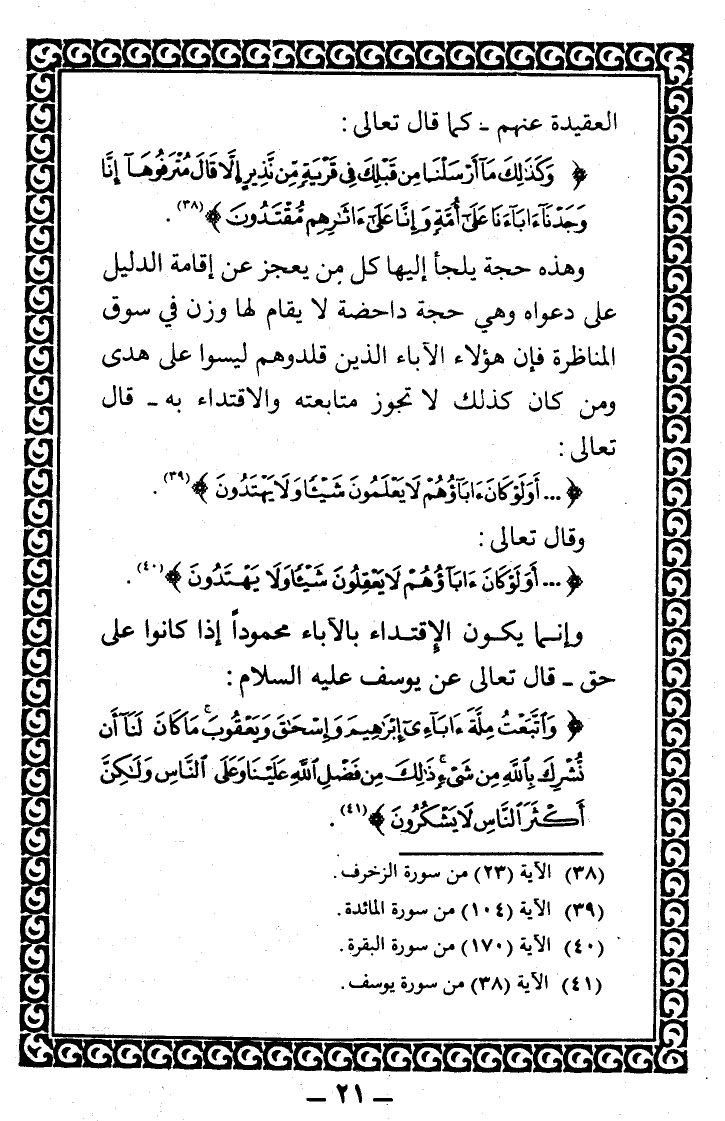 العقيدة عنهم ـ كما قال تعالى :
﴿ وَكَذَٰلِكَ مَآ أَرْسَلْنَا مِن قَبْلِكَ فِى قَرْيَةٍ مِّن نَّذِيرٍ إِلَّا قَالَ مُتْرَفُوهَآ إِنَّا
وَجَدْنَآ ءَابَآءَنَا عَلَىٰٓ أُمَّةٍ وَإِنَّا عَلَىٰٓ ءَاثَٰرِهِم مُّقْتَدُونَ ﴾(٣٨) .
وهذه حجة يلجأ إليها كل مِن يعجز عن إقامة الدليل
على دعواه وهي حجة داحضة لا يقام لها وزن في سوق
المناظرة فإن هؤلاء الآباء الذين قلدوهم ليسوا على هدى
ومن كان كذلك لا تجوز متابعته والاقتداء به ـ قال
تعالى :
﴿ ... أَوَلَوْ كَانَ ءَابَآؤُهُمْ لَا يَعْلَمُونَ شَيْـًٔا وَلَا يَهْتَدُونَ ﴾(٣٩) .
وقال تعالى :
﴿ ... أَوَلَوْ كَانَ ءَابَآؤُهُمْ لَا يَعْقِلُونَ شَيْـًٔا وَلَا يَهْتَدُونَ ﴾(٤٠) .
وإنما يكون الإِقتداء بالآباء محموداً إذا كانوا على
حق ـ قال تعالى عن يوسف عليه السلام :
﴿ وَٱتَّبَعْتُ مِلَّةَ ءَابَآءِىٓ إِبْرَٰهِيمَ وَإِسْحَٰقَ وَيَعْقُوبَ ۚ مَا كَانَ لَنَآ أَن
نُّشْرِكَ بِٱللَّهِ مِن شَىْءٍ ۚ ذَٰلِكَ مِن فَضْلِ ٱللَّهِ عَلَيْنَا وَعَلَى ٱلنَّاسِ وَلَٰكِنَّ
أَكْثَرَ ٱلنَّاسِ لَا يَشْكُرُونَ ﴾(٤١) .
(٣٨) الآية (٢٣) من سورة الزخرف .
(٣٩) الآية (١٠٤) من سورة المائدة .
(٤٠) الآية (١٧٠) من سورة البقرة .
(٤١) الآية (٣٨) من سورة يوسف .
ـ ٢١ ـ